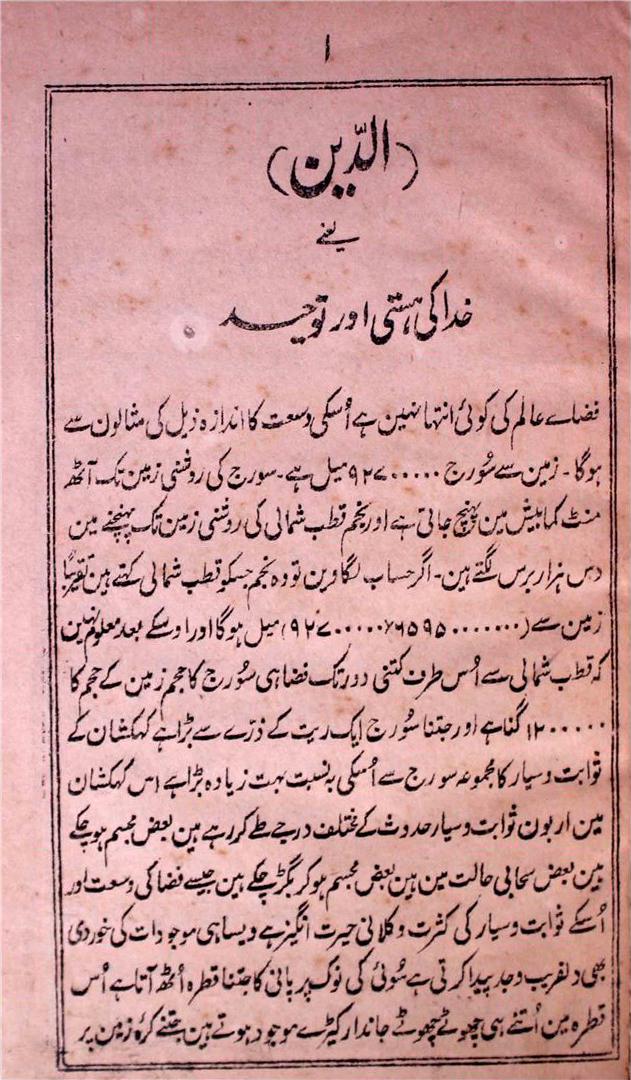 ۱
(الدّین)
یعنے
خدا کی ہستی اور توحید
فضاے عالم کی کوئی انتہا نہین ہے اُسکی وسعت کا اندازہ ذیل کی مثالون سے
ہوگا۔ زمین سے سُورج ۹۲۷۰۰۰۰۰ میل ہے۔ سورج کی روشنی زمین تک آٹھ
منٹ کمابیش مین پہنچ جاتی ہے اور نجم قطب شمالی کی روشنی زمین تک پہنچنے مین
دس ہزار برس لگتے ہین۔ اگر حساب لگاوین تو وہ نجم جسکو قطب شمالی کہتے ہین تقریباً
زمین سے میل ہوگا اور اوسکے بعد معلوم نہین
کہ قطب شمالی سے اُس طرف کتنی دور تک فضا ہی سُورج کا حجم زمین کے حجم کا
۱۲۰۰۰۰۰ گنا ہے اور جتنا سُورج ایک ریت کے ذرّے سے بڑا ہے کہکشان کے
ثوابت و سیار کا مجموعہ سورج سے اُسکی بہ نسبت بہت زیادہ بڑا ہے اس کہکشان
مین اربون ثوابت و سیار حدوث کے مختلف درجے طے کر رہے ہین بعض مجسم ہو چکے
ہین بعض سحابی حالت مین ہین بعض مجسم ہو کر بگڑ چکے ہین جیسے فضا کی وسعت اور
اُسکے ثوابت و سیار کی کثرت و کلانی حیرت انگیز ہے ویسا ہی موجودات کی خوردی
بھی دلفریب وجد پیدا کرتی ہے سُوئی کی نوک پر پانی کا جتنا قطرہ اُٹھ آتا ہے اُس
قطرہ مین اُتنے ہی چھوٹے چھوٹے جاندار کیڑے موجود ہوتے ہین جتنے کرۂ زمین پر